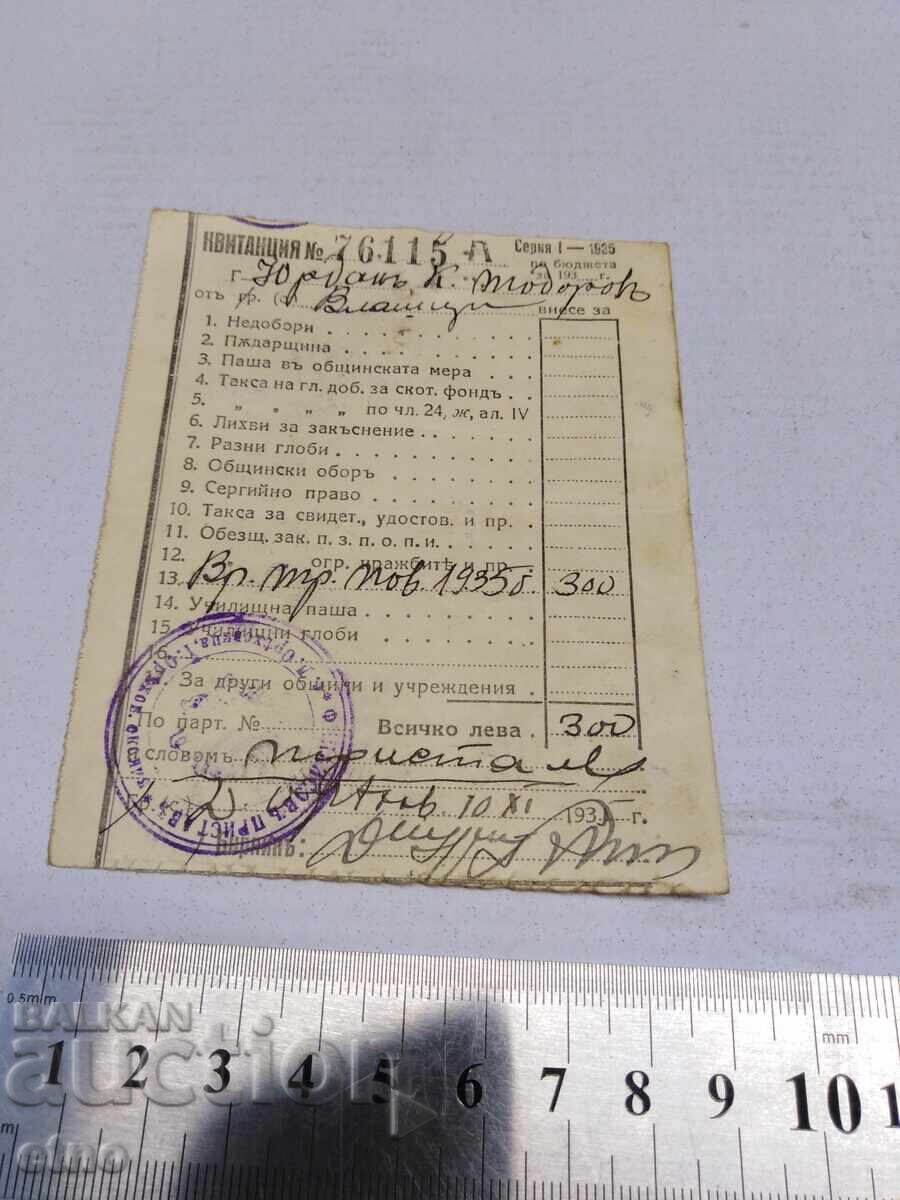 КВИТАНЦИЯ № 76115 А Серия I — 1935
по бюджета
г. Юрданъ К. Тодоровъ за 193 г.
отъ гр. (с) внесе за
1. Недобори
2. Пѫдарщина
3. Паша въ общинската мера
4. Такса на гл. доб. за скот. фондъ
5. „ „ „ „ по чл. 24, ж, ал. IV
6. Лихви за закъснение
7. Разни глоби
8. Общински оборъ
9. Сергийно право
10. Такса за свидет., удостов. и пр.
11. Обезщ. зак. п. з. п. о п. и.
12. „ огр. кражбитѣ и пр.
13. Вр. тр. пов. 1935 г. 300
14. Училищна паша
15. Училищни глоби
16.
За други общини и учреждения
По парт. № Всичко лева 300
словомъ триста лв
10 XI 1935 г.
Бирникъ:
ПРИСТАВЪ
BALKAN
auction
elmo
0.5mm mm
1 2 3 4 5 6 7 8 9 10 1